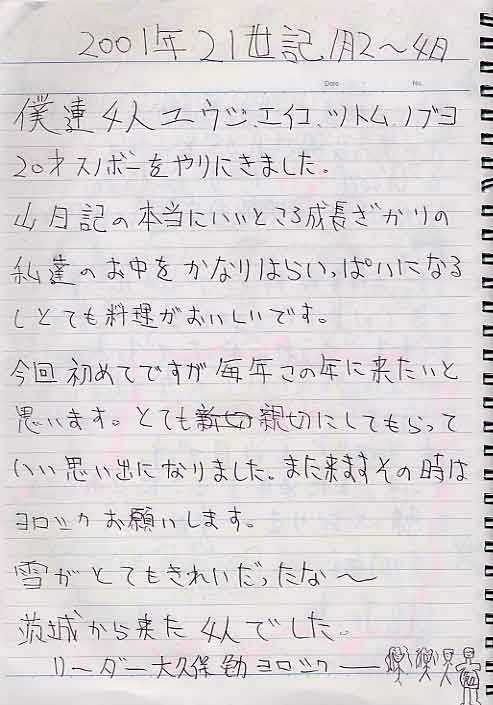 2001年21世記.1月2〜4日
Date No.
僕達4人エウジ.エイコ.ツトム.ノブヨ
20才スノボーをやりにきました。
山日記の本当にいいところ成長ざかりの
私達のお中をかなりはらいっぱいになる
しとても料理がおいしいです。
今回初めてですが毎年この年に来たいと
思います。とても新切親切にしてもらって
いい思い出になりました。また来ますその時は
ヨロシクお願いします。
雪がとてもきれいだったな〜
茨城から来た4人でした。
リーダー大久保勤ヨロシクー